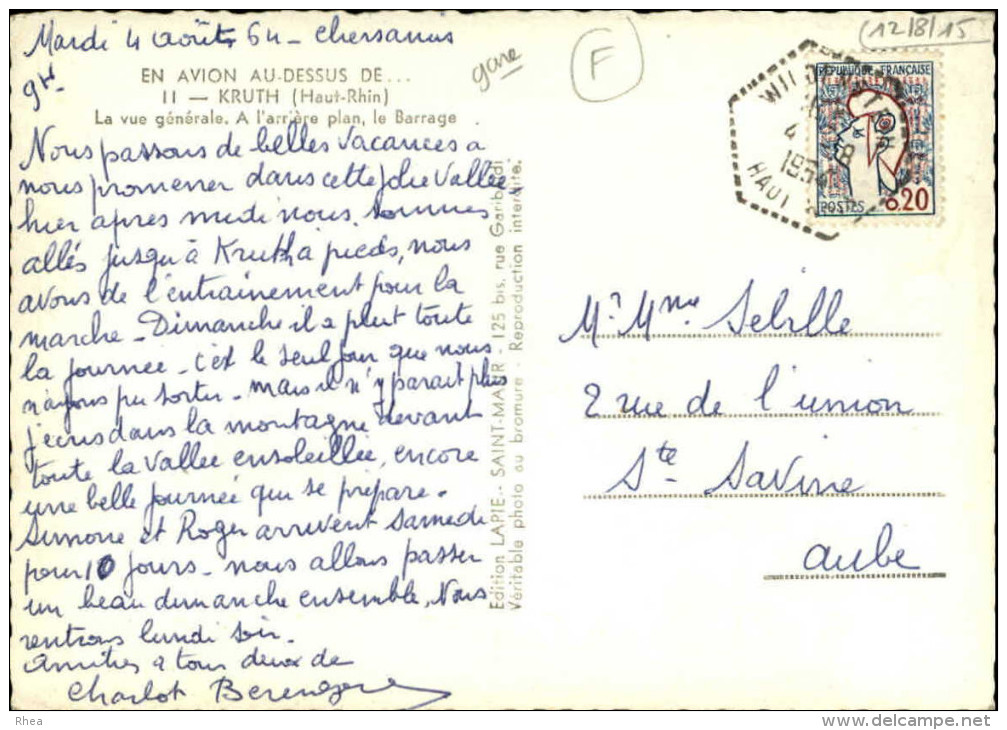 Mardi 4 août 64 -
9H
EN AVION AU-DESSUS DE...
11 — KRUTH (Haut-Rhin)
La vue générale. A l'arrière plan, le Barrage
Nous passons de belles vacances a
nous promener dans cette jolie vallée
hier apres midi nous sommes
allés jusqu'à Kruth à pieds, nous
avons de l'entrainement pour la
marche - Dimanche il a plut toute
la journée - c'est le seul jour que nous
n'ayons pu sortir - mais il n'y parait plus
j'ecris dans la montagne devant
toute la vallée ensoleillée, encore
une belle journée qui se prépare -
Simone et Roger arrivent samedi
pour 10 jours - nous allons passer
un beau dimanche ensemble, Nous
rentrons lundi soir -
amities a tous deux de
Charlot Berengere
Edition LAPIE - SAINT-MAUR - 125 bis, rue Garibaldi
Véritable photo au bromure - Reproduction interdite.
gare
F
(12/8/15
4 - 8
1964
HAUT
REPUBLIQUE FRANÇAISE
POSTES 0,20
Mr Mme Sebille
2 rue de l'union
Ste Savine
aube
Rhea
www.delcampe.net